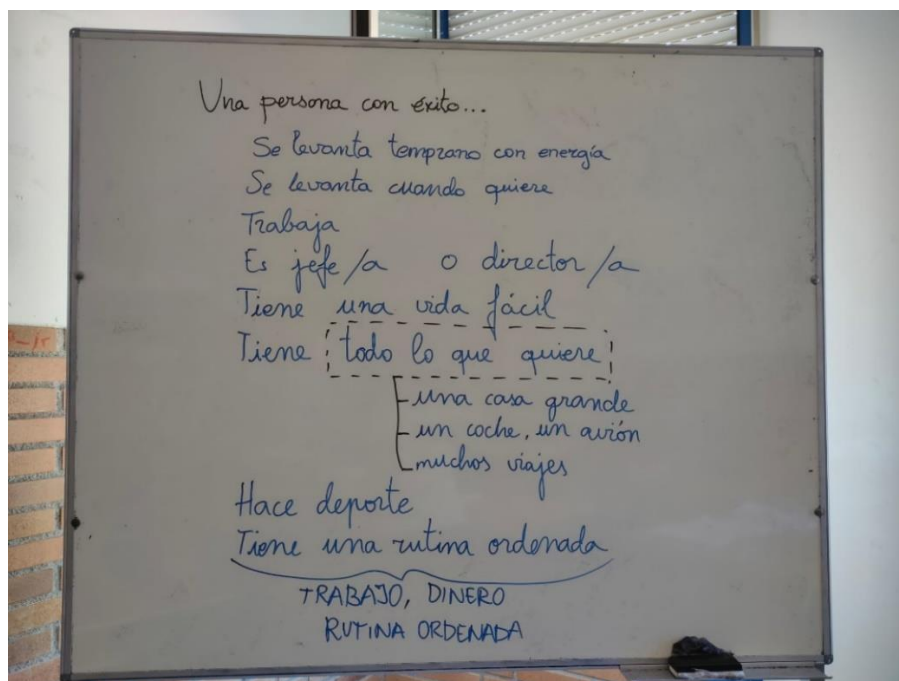 Una persona con éxito...
Se levanta temprano con energía
Se levanta cuando quiere
Trabaja
Es jefe/a o director/a
Tiene una vida fácil
Tiene todo lo que quiere
- una casa grande
- un coche, un avión
- muchos viajes
Hace deporte
Tiene una rutina ordenada
TRABAJO, DINERO
RUTINA ORDENADA